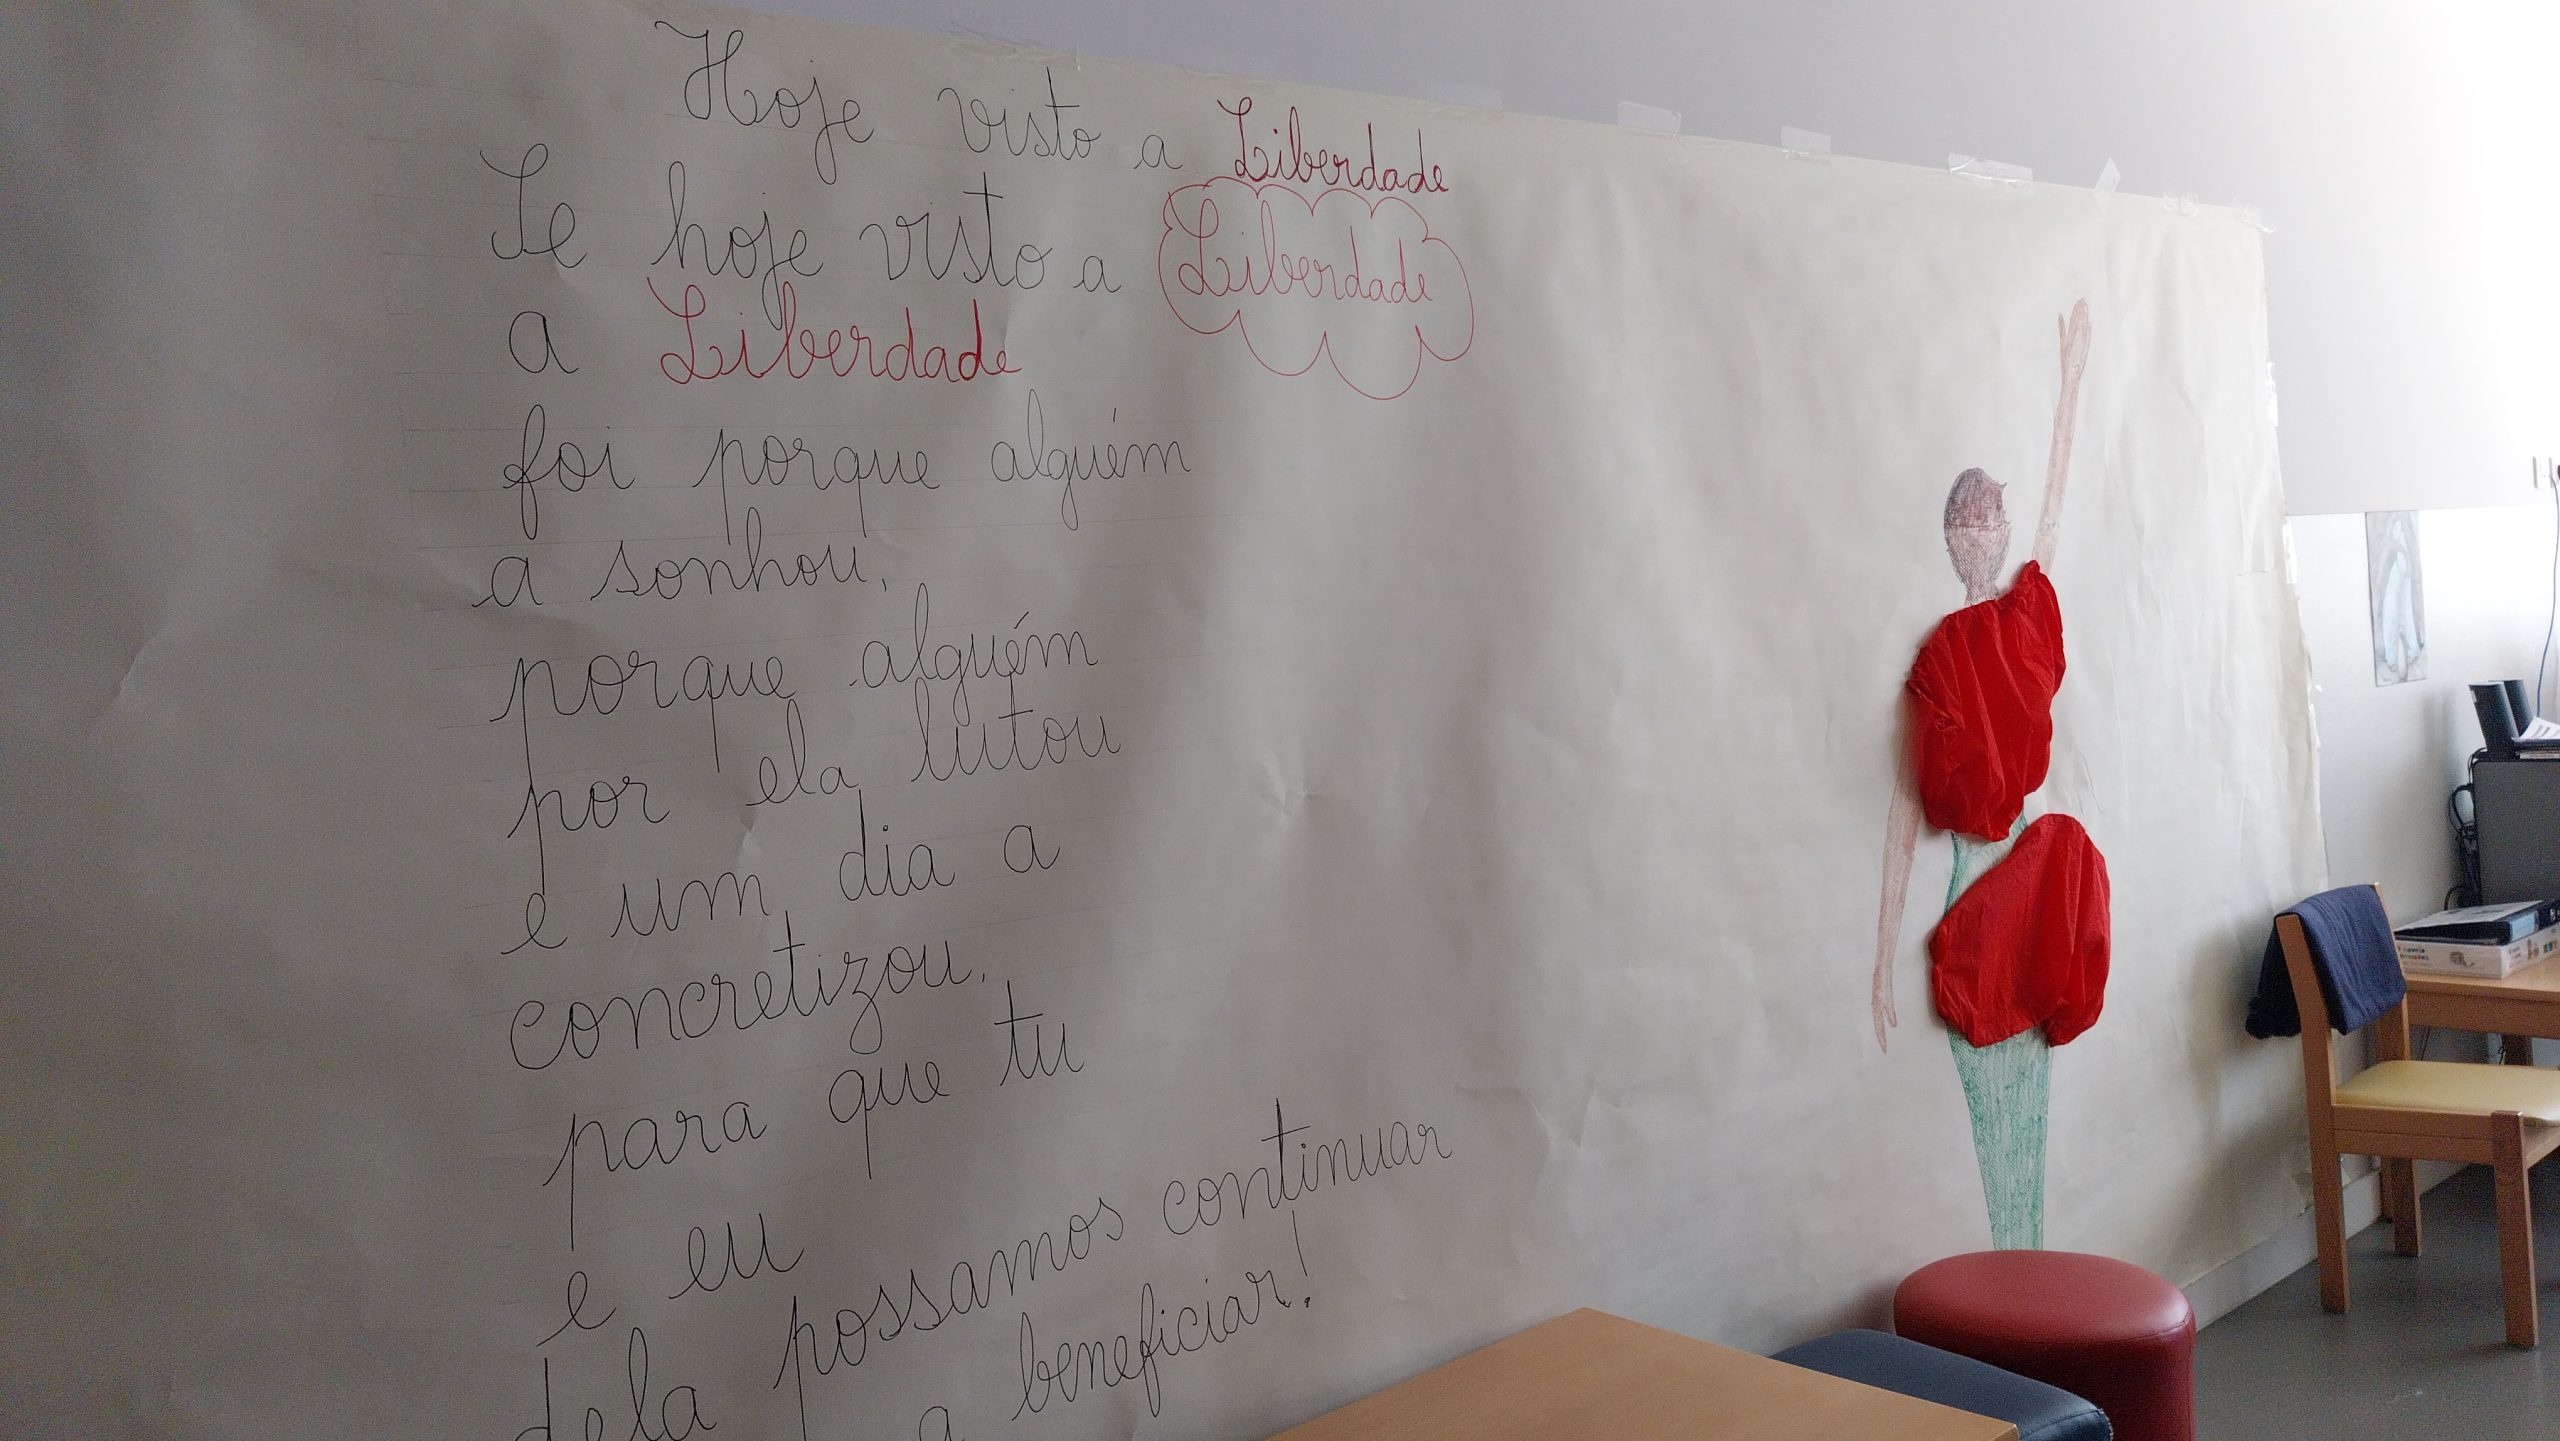 Hoje visto a Liberdade
Se hoje visto a Liberdade
a Liberdade
foi porque alguém
a sonhou,
porque alguém
por ela lutou
e um dia a
concretizou,
para que tu
e eu
dela possamos continuar
a beneficiar!